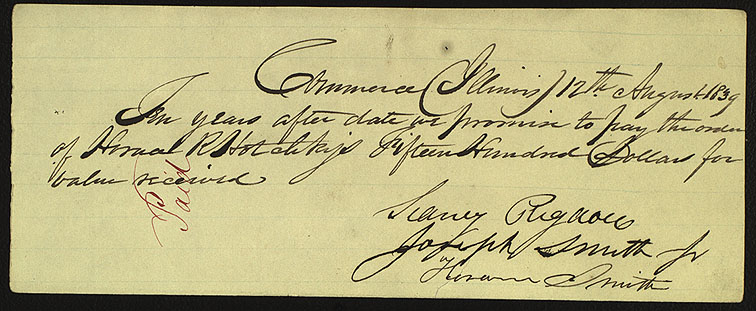 Commerce (Illinois) 12th August 1839
Ten years after date we promise to pay the order
of Horace R Hotchkiss Fifteen Hundred Dollars for
value received
Paid
Sidney Rigdon
Joseph Smith Jr
Hiram Smith